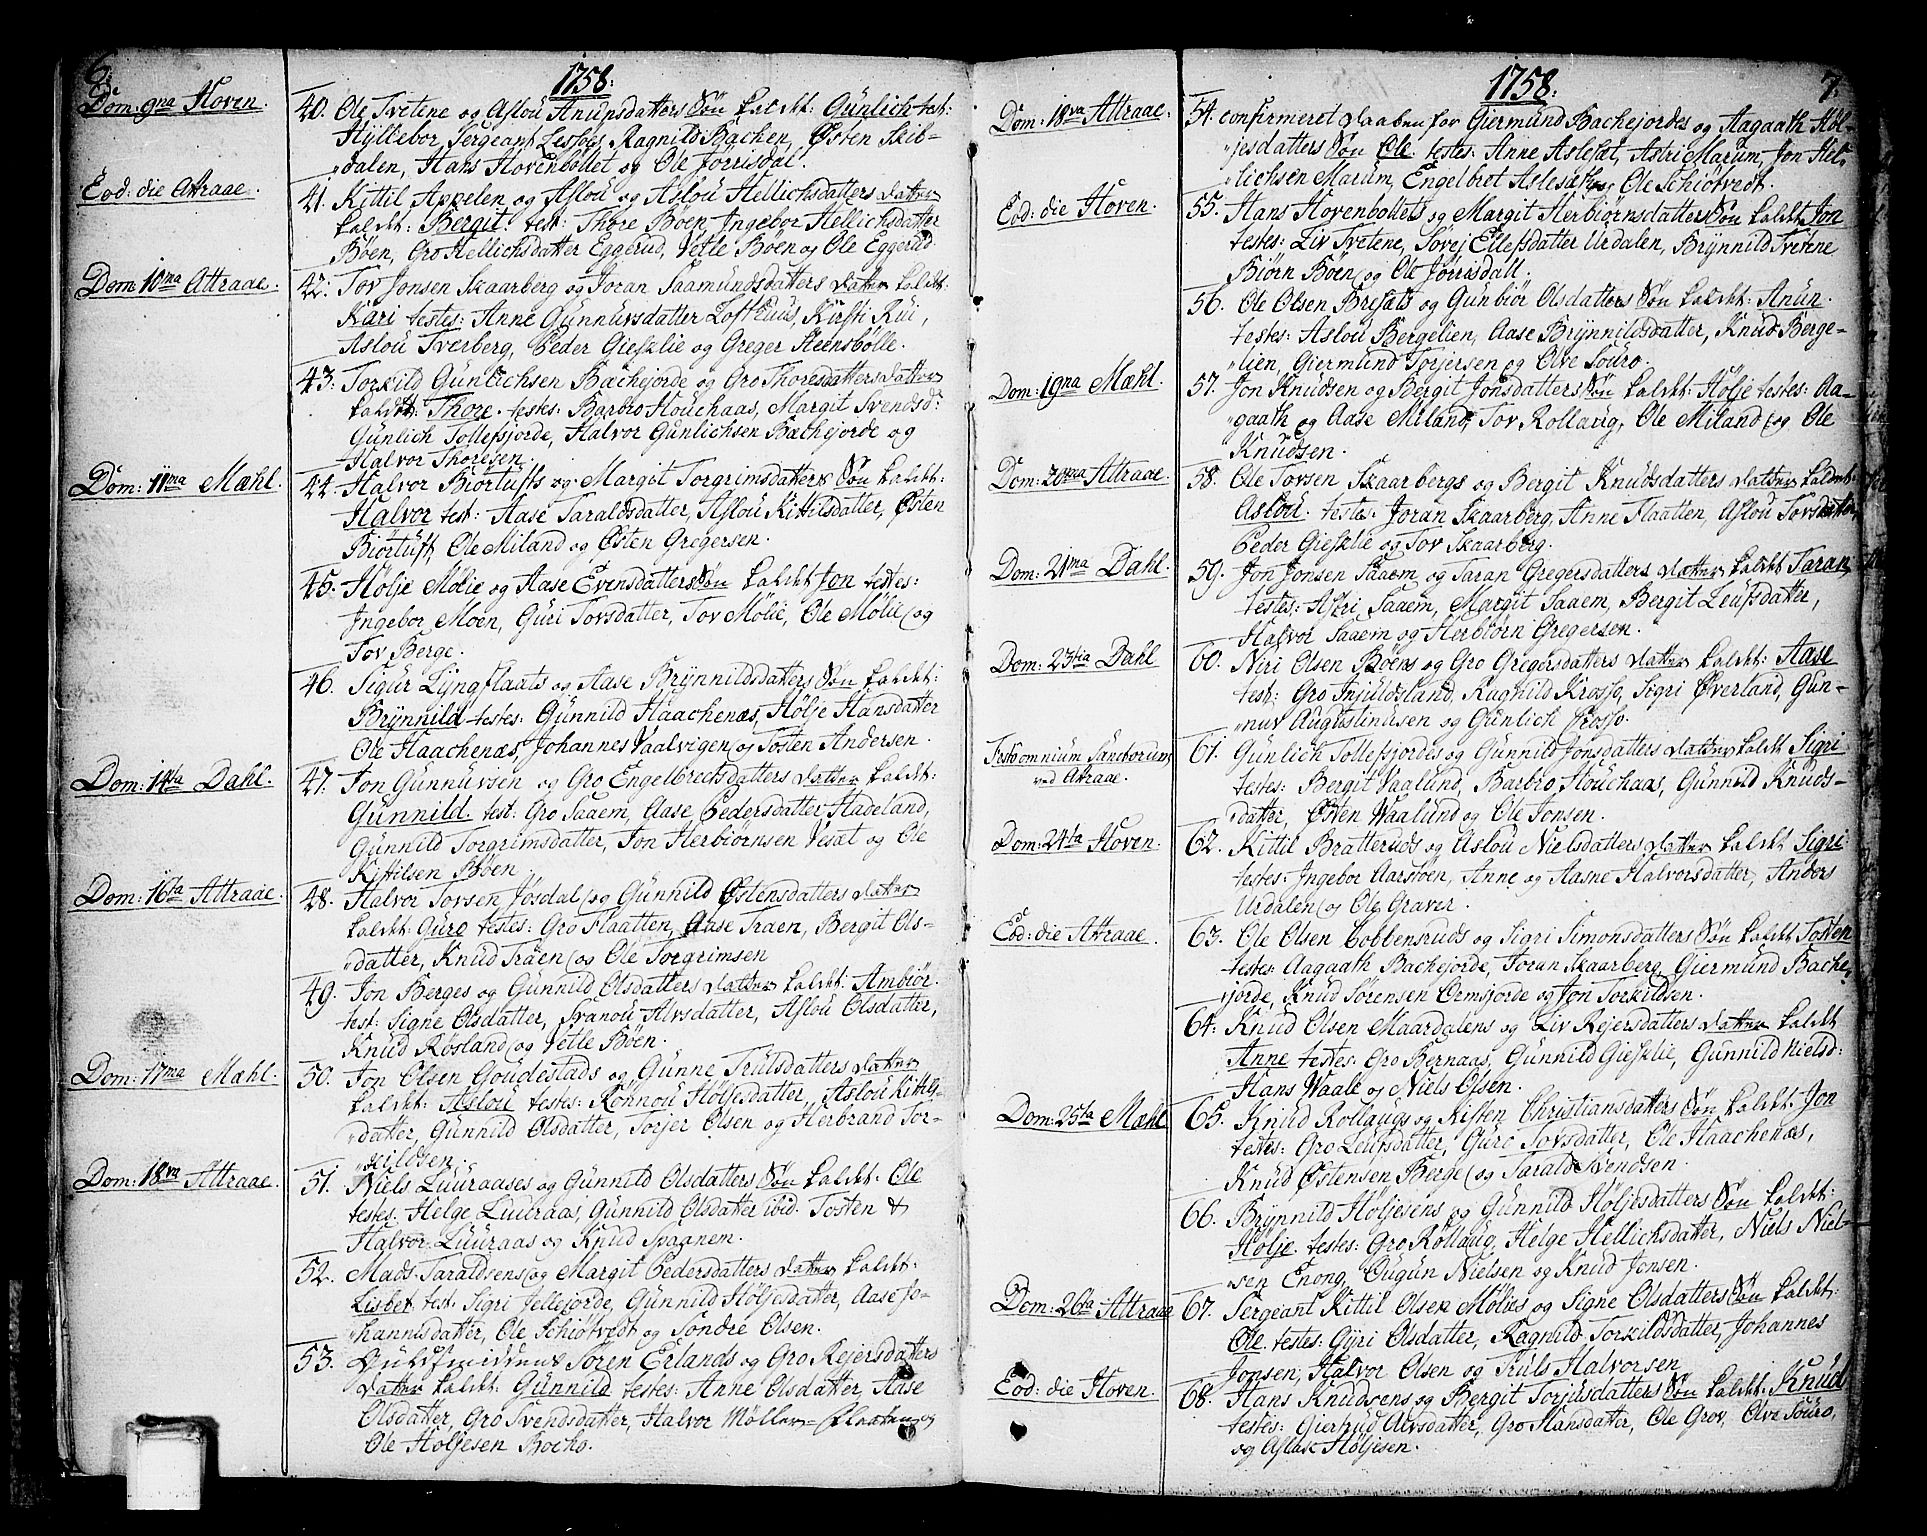 6.
1758.
Dom: 9na Hoven.
40. Ole Tvetene og Aslou Anunsdatters Søn kaldt: Günlich test:
Hyllebor Sergeant Lessøes, Ragnild Bachen, Østen Skib-
dalen, Hans Hovenbollet og Ole Jorrisdal.
Eod: die Attraae.
41. Kittil Appelen og Aslou Hellichsdatters datter
kaldt: Bergit. test: Thore Bøen, Ingebor Hellichsdatter
Bøen, Gro Hellichsdatter Eggerud, Vetle Bøen og Ole Eggerud.
Dom: 10ma Attraae.
42. Tov Jonsen Skaarberg og Joran Saamundsdatters datter kaldt:
Kari testes: Anne Gunnursdatter Lofthuus, Kirsti Rui,
Aslou Tverberg, Peder Gisklie og Greger Steensbølle.
43. Torkild Günlichsen Bachejorde og Gro Thoresdatters datter
kaldt: Thore. testes: Barbro Houchaas, Margit Svendsd:
Günlich Tollefsjorde, Halvor Günlichsen Bachejorde og
Halvor Thoresen.
Dom: 11ma Mæhl.
44. Halvor Biortufts og Margit Torgrimsdatters Søn kaldt:
Halvor test: Aase Taraldsdatter, Aslou Kittilsdatter, Østen
Biørtuft, Ole Miland og Østen Gregersen.
45. Hølje Mølie og Aase Evensdatters Søn kaldt Jon testes:
Ingebor Moen, Guri Tovsdatter, Tov Mølie, Ole Mølie og
Tov Berge.
46. Sigur Lyngflaats og Aase Brynnildsdatters Søn kaldt:
Brynnild testes: Günnild Haachenæs, Hølje Hansdatter
Ole Haachenæs, Johannes Vaalvigen og Tosten Andersen.
Dom: 14ta Dahl.
47. Jon Gunnursen og Gro Engelbrechsdatters datter kaldt:
Günnild. test: Gro Saaem, Aase Pedersdatter Hadeland,
Günnild Torgrimsdatter, Jon Herbiørnsen Vesat og Ole
Kittilsen Bøen
Dom: 16ta Attraae.
48. Halvor Tovsen Josdal og Günnild Østensdatters datter
kaldt: Guro testes: Gro Flaatten, Aase Traen, Bergit Ols-
datter, Knud Traen og Ole Torgrimsen
49. Jon Berges og Günnild Olsdatters datter kaldt: Ambiør.
test: Signe Olsdatter, Svanou Alvsdatter, Aslou Olsdatter,
Knud Røsland og Vetle Bøen.
Dom: 17ma Mæhl.
50. Jon Olsen Goudestads og Gunne Trulsdatters datter
kaldt: Aslou testes: Rønnou Høljesdatter, Aslou Kittils-
datter, Günnild Olsdatter, Torjer Olsen og Herbrand Tor-
kildsen.
Dom: 18va Attraae.
51. Niels Luuraases og Günnild Olsdatters Søn kaldt: Ole
testes. Helge Luuraas, Günnild Olsdatter ibid. Tosten &
Halvor Luuraas og Knud Spaanem.
52. Mads Taraldsens og Margit Pedersdatters datter kaldt:
Lisbet test. Sigri Jellejorde, Günnild Høljesdatter, Aase Jo-
hannisdatter, Ole Schiøtvedt og Sondre Olsen.
53. Guldsmiddens Søren Erlands og Gro Rejersdatters
datter kaldt: Günnild testes: Anne Olsdatter, Aase
Olsdatter, Gro Svendsdatter, Halvor Møller-flaaten og
Ole Høljesen Bocko.
7.
1758.
Dom: 18va Attraae.
54. confirmeret daaben for Giermund Bachejordes og Aagaath Høl-
jesdatters Søn Ole. testes: Anne Aslesæt, Astri Marum, Jon Hel-
lichsen Marum, Engelbret Aslesæth og Ole Schiøtvedt.
Eod: die Hoven.
55. Hans Hovenbollets og Margit Herbiørnsdatters Søn kaldt Jon
testes: Liv Tvetene, Søvej Ellefsdatter Urdalen, Brynnild Tvetene
Biørn Bøen og Ole Jørrisdall.
56. Ole Olsen Bresæts og Günbiør Olsdatters Søn kaldt: Anun.
testes: Aslou Bergelien, Aase Brynnildsdatter, Knud Berge-
lien, Giermund Torjersen og Olve Souro.
Dom: 19na Mæhl.
57. Jon Knudsen og Bergit Jonsdatters Søn kaldt: Hølje testes: Aa-
gaath og Aase Miland, Tov Rollaug, Ole Miland og Ole
Knudsen.
Dom: 20ma Attraae.
58. Ole Tovsen Skaarbergs og Bergit Knudsdatters datter kaldet:
Aslou. testes: Joran Skaarberg, Anne Flaatten, Aslou Tovsdatter,
Peder Giesklie og Tov Skaarberg.
Dom: 21ma Dahl.
59. Jon Jonsen Saaem, og Taran Gregersdatters datter kaldt Taran,
testes: Astri Saaem, Margit Saaem, Bergit Leufsdatter,
Halvor Saaem og Herbiørn Gregersen.
Dom: 23tia Dahl
60. Niri Olsen Bøens og Gro Gregersdatters datter kaldt: Aase
test: Gro Insuldsland, Ragnild Krosso, Sigri Øverland, Gun-
nuv Augustinusen og Günlich Krosso.
Festo omnium Sanctorum
ved Attraae.
61. Günlich Tollefsjordes og Günnild Jonsdatters datter kaldt Sigri
testes: Bergit Vaalund, Barbro Houchaas, Günnild Knuds-
datter, Østen Waalund og Ole Jonsen.
Dom: 24ta Hoven.
62. Kittil Bratteruds og Aslou Nielsdatters datter kaldt Sigri:
testes: Ingebor Aarstoen, Anne og Aasne Halvorsdatter, Anders
Urdalen og Ole Graver.
Eod: die Attraae.
63. Ole Olsen Cobbensruds og Sigri Simonsdatters Søn kaldt Tosten
testes: Aagaath Bachejorde, Joran Skaarberg, Giermund Bache-
jorde, Knud Sørensen Ormsjorde og Jon Torkildsen.
64. Knud Olsen Maardalens og Liv Rejersdatters datter kaldt
Anne testes: Gro Bernaas, Günnild Giesklie, Günnild Nielsd:
Hans Waale og Niels Olsen.
Dom: 25ta Mæhl
65. Knud Rollaugs og Kisten Christiansdatters Søn kaldt: Jon
testes: Gro Leufsdatter, Guro Tovsdatter, Ole Haachenæs,
Knud Østensen Berge og Tarald Svendsen.
66. Brynnild Høljesens og Günnild Høljesdatters Søn kaldt:
Hølje. testes: Gro Rollaug, Helge Hellichsdatter, Niels Niel-
sen Enong, Øugun Nielsen og Knud Jonsen.
Dom: 26ta Attraae
67. Sergeant Kittil Olsen Møljes og Signe Olsdatters Søn kaldt:
Ole testes: Gyri Olsdatter, Ragnild Torkildsdatter, Johannes
Jonsen, Halvor Olsen og Truls Halvorsen
Eod: die Hoven.
68. Hans Knudsens og Bergit Torjusdatters Søn kaldt: Knud
testes: Giertrud Alvsdatter, Gro Hansdatter, Ole Grov, Olve Souro,
og Aslak Høljesen.